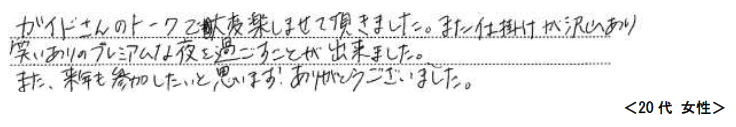 ガイドさんのトークで大変楽しませて頂きました。また仕掛けが沢山あり
笑いありのプレミアムな夜を過ごすことが出来ました。
また、来年も参加したいと思います!ありがとうございました。
<20代 女性>